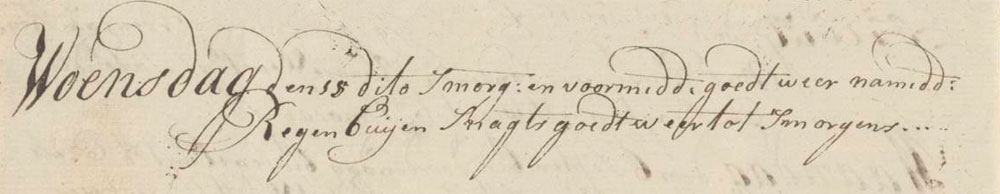 Woensdag den 15 dito Smorg: en voormidd: goedt weer namidd:
Regen Buijen Snagts goedt weer tot Smorgens...